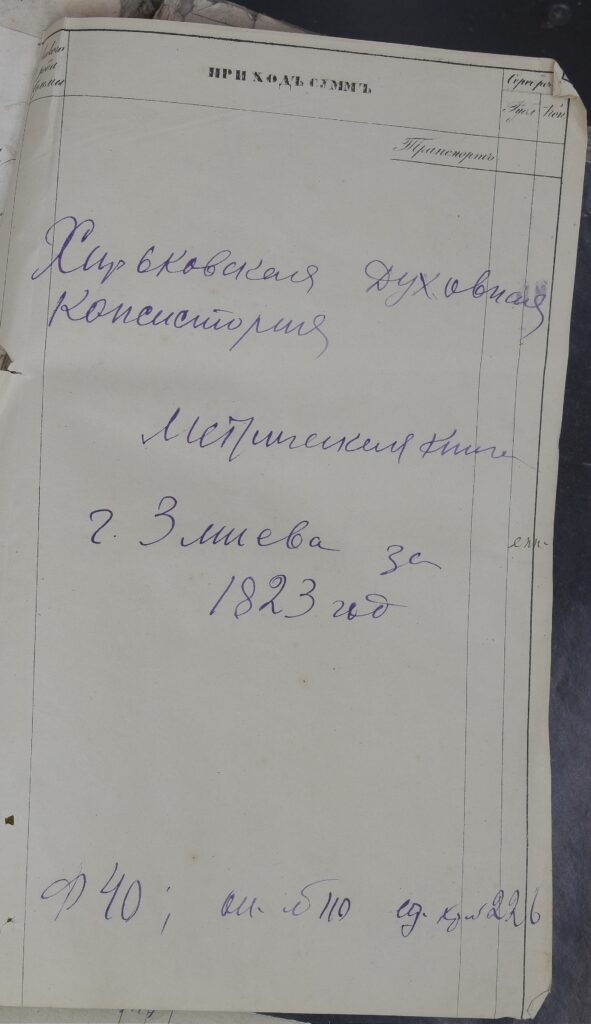 ПРИХОДЪ СУММЪ
Серебр.
Рубл Коп
Транспортъ
Харьковская Духовная
Консистория
Метрическая книга
г. Змиева за
1823 год
Ф 40; оп. № 110 ед. хр. № 226